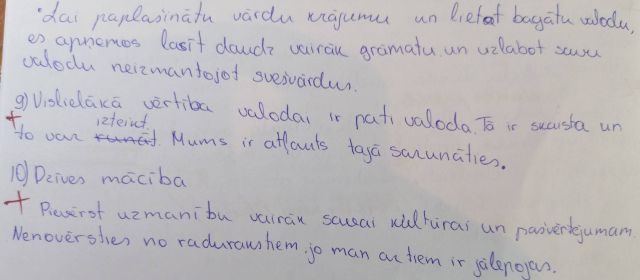 Lai paplašinātu vārdu krājumu un lietot bagātu valodu,
es apņemos lasīt daudz vairāk grāmatu un uzlabot savu
valodu neizmantojot svešvārdus.
9) Vislielākā vērtība valodai ir pati valoda. Tā ir skaista un
izteikt
+ to var runāt. Mums ir atļauts tajā sarunāties.
10) Dzīves mācība
+ Pievērst uzmanību vairāk savai kultūrai un pašvērtējumam.
Nenovērsties no radurakstiem, jo man ar tiem ir jālepojas.